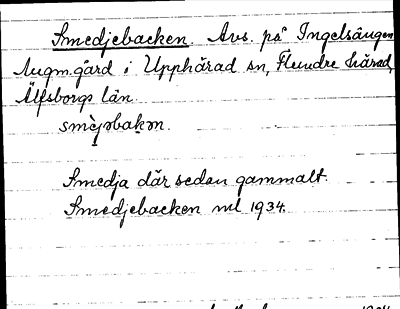 Smedjebacken. Avs. på Ingelsängen
Augm.gård i Upphärad sn, Flundre härad,
Älfsborgs län.
smèjəbakən.
Smedja där sedan gammalt.
Smedjebacken ml 1934.